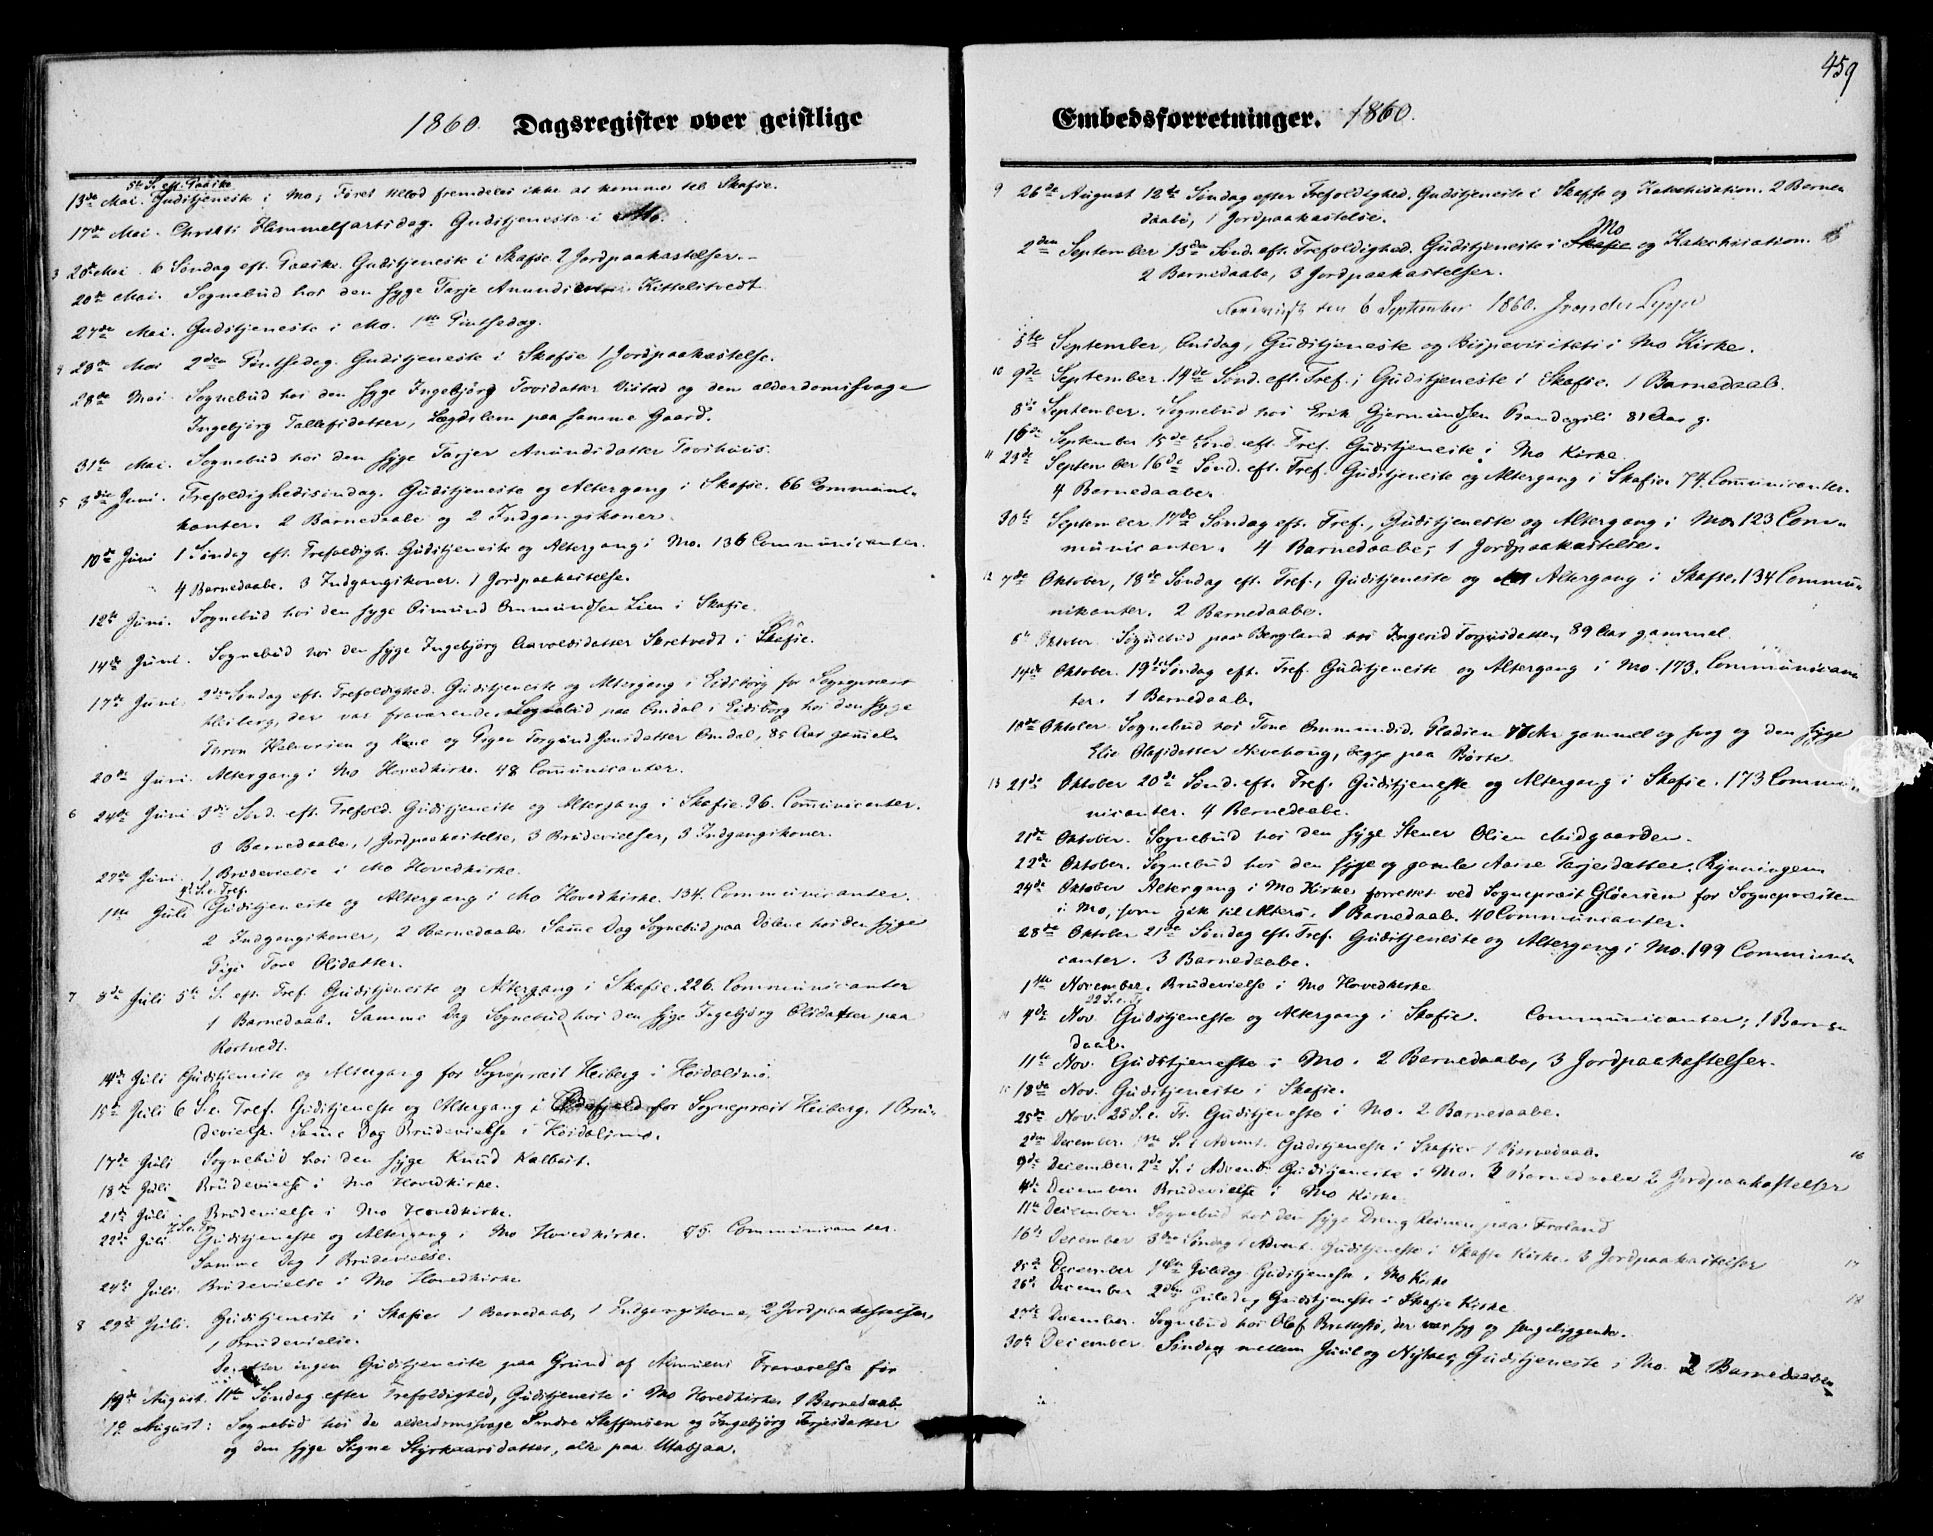 459
1860. Dagsregister over geistlige
5te S. eft. Paaske
13de Mai. Gudstjeneste i Mo; Føret tillod fremdeles ikke at komme til Skafse.
17de Mai. Christi Himmelfartsdag. Gudstjeneste i Mo.
3 20de Mai. 6 Søndag eft. Paaske. Gudstjeneste i Skafse 2 Jordpaakastelser.
20de Mai. Sognebud hos den syge Tarje Kittelstvedt
27de Mai. Gudstjeneste i Mo. 1ste Pintsedag.
4 28de Mai 2den Pintsedag. Gudstjeneste i Skafse 1 Jordpaakastelse.
28de Mai. Sognebud hos den syge Ingebjørg Tovsdatter og den alderdomssvage
Ingebjørg Tallefsdatter, Lægdslem paa samme Gaard.
31te Mai. Sognebud hos den syge Tarjer Amundsdatter
5 3die Juni. Trefoldighedssøndag. Gudstjeneste og Altergang i Skafse. 66 Communi-
kanter. 2 Barnedaabe og 2 Indgangskoner.
10de Juni 1 Søndag eft. Trefoldigh. Gudstjeneste og Altergang i Mo. 136 Communicanter.
4 Barnedaabe. 3 Indgangskoner. 1 Jordpaakastelse.
12te Juni. Sognebud hos den syge Osmund Ommundsen Lien i Skafse.
14de Juni. Sognebud hos den syge Ingebjørg Aavoldsdatter Skretvedt i Skafse.
17de Juni. 2den Søndag eft. Trefoldighed. Gudstjeneste og Altergang i Eidsborg for Sognepræst
Heiberg, der var fraværende. Sognebud paa Omdal i Eidsborg hos den syge
Thron Halvorsen og Kone og Pigen Torgund Jonsdatter Omdal, 85 Aar gammel.
20de Juni. Altergang i Mo Hovedkirke. 48 Communicanter.
6 24de Juni 3die Sønd. eft. Trefold. Gudstjeneste og Altergang i Skafse. 96. Communicanter.
3 Barnedaabe, 1 Jordpaakastelse, 3 Brudevielser, 3 Indgangskoner.
27de Juni. 1 Brudevielse i Mo Hovedkirke.
4 S. e. Tref.
1ste Juli Gudstjeneste og Altergang i Mo Hovedkirke. 134. Communicanter.
2 Indgangskoner, 2 Barnedaabe. Samme Dag Sognebud paa Dalene hos den syge
Pige Tone Olsdatter.
7 8de Juli 5te S. eft. Tref. Gudstjeneste og Altergang i Skafse. 226. Communicanter
1 Barnedaab. Samme Dag Sognebud hos den syge Ingebjørg Olsdatter paa
Rostvedt.
14de Juli Gudstjeneste og Altergang for Sognepræst Heiberg i Høidalsmo.
15de Juli 6 S. e. Tref. Gudstjeneste og Altergang i for Sognepræst Heiberg. 1 Bru-
devielse. Samme Dag Brudevielse i Høidalsmo.
17de Juli Sognebud hos den syge Knud Kalbast.
18de Juli Brudevielse i Mo Hovedkirke.
21de Juli. Brudevielse i Mo Hovedkirke.
7 S. e. Tr.
22de Juli Gudstjeneste og Altergang i Mo Hovedkirke. 75. Communicanter.
Samme Dag 1 Brudevielse.
24de Juli. Brudevielse i Mo Hovedkirke
8 29de Juli. Gudstjeneste i Skafse 1 Barnedaab, 1 Indgangskone, 2 Jordpaakastelser,
1 Brudevielse.
Derefter ingen Gudstjeneste paa Grund af Fraværelse før
19de August. 11te Søndag efter Trefoldighed, Gudstjeneste i Mo Hovedkirke. 1 Barnedaab
August: Sognebud hos de alderdomssvage Sondre Steffensen og Ingebjørg Tarjesdatter
og den syge Signe Styrkaarsdatter, alle paa Utabjaa.
Embedsforretninger. 1860.
9 26de August 12te Søndag efter Trefoldighed. Gudstjeneste i Skafse og Katechisation. 2 Barne-
daabe, 1 Jordpaakastelse.
Mo
2den September 13de Sønd. eft. Trefoldighed. Gudstjeneste i Skafse og Katechisation.
2 Barnedaabe, 3 Jordpaakastelser.
den 6 September 1860.
5te September, Onsdag, Gudstjeneste og Bispevisitats i Mo Kirke.
10 9de September. 14de Sønd. eft. Tref.; Gudstjeneste i Skafse. 1 Barnedaab.
8de September. Sognebud hos Erik Gjermundsen Bandagsli 81 Aar g.
16de September 15de Sønd. eft. Tref. Gudstjeneste i Mo Kirke.
11 23de September 16de Sønd. eft. Tref. Gudstjeneste og Altergang i Skafse. 74. Communicanter.
4 Barnedaabe.
30te September 17de Søndag eft. Tref., Gudstjeneste og Altergang i Mo. 123 Com-
municanter. 4 Barnedaabe, 1 Jordpaakastelse.
12 7de Oktober, 18de Søndag eft. Tref., Gudstjeneste og Altergang i Skafse. 134 Commu-
nikanter. 2 Barnedaabe.
6te Oktober Sognebud paa Bergland hos Ingerid Torjusdatter, 89 Aar gammel.
14de Oktober. 19de Søndag eft. Tref. Gudstjeneste og Altergang i Mo. 173. Communican-
ter. 1 Barnedaab.
18de Oktober Sognebud hos Tone Ommundsd. 77 Aar gammel og svag og den syge
Else Olafsdatter Nordboug, begge paa Børte.
13 21de Oktober 20de Sønd. eft. Tref. Gudstjeneste og Altergang i Skafse. 173 Commu-
nicanter. 4 Barnedaabe.
21de Oktober. Sognebud hos den syge Stener Olsen Midgaarden.
22de Oktober. Sognebud hos den syge og gamle Aasne Tarjesdatter. Rynningen.
24de Oktober Altergang i Mo Kirke forrettet ved Sognepræst Gløersen for Sognepræsten
i Mo, som gik til Alters. 1 Barnedaab. 40 Communicanter.
28de Oktober 21de Søndag eft. Tref. Gudstjeneste og Altergang i Mo. 199 Communi-
canter. 3 Barnedaabe.
1ste November. Brudevielse i Mo Hovedkirke
22 S. e. Tr.
14 4de Nov. Gudstjeneste og Altergang i Skafse. Communicanter; 1 Barne-
daab.
11te Nov. Gudstjeneste i Mo. 2 Barnedaabe, 3 Jordpaakastelser.
15 18de Nov. Gudstjeneste i Skafse.
25de Nov. 25 S. e. Tr. Gudstjeneste i Mo. 2 Barnedaabe.
2den December. 1ste S. i Advent. Gudstjeneste i Skafse 1 Barnedaab. 16
9de December. 2de S. i Advent Gudstjeneste i Mo. 3 Barnedaabe 2 Jordpaakastelser
4de December. Brudevielse i Mo Kirke.
11te December. Sognebud hos den syge Dreng Reiner paa Froland
16de December 3die Søndag i Advent. Gudstjeneste i Skafse Kirke. 3 Jordpaakastelser 17
25de December 1ste Juledag Gudstjeneste i Mo Kirke
26de December 2den Juledag Gudstjeneste i Skafse Kirke. 18
27de December. Sognebud hos Olef Brattestø, der var syg og sengeliggende.
30te December Søndag mellem Juul og Nytaar, Gudstjeneste i Mo. 2 Barnedaabe